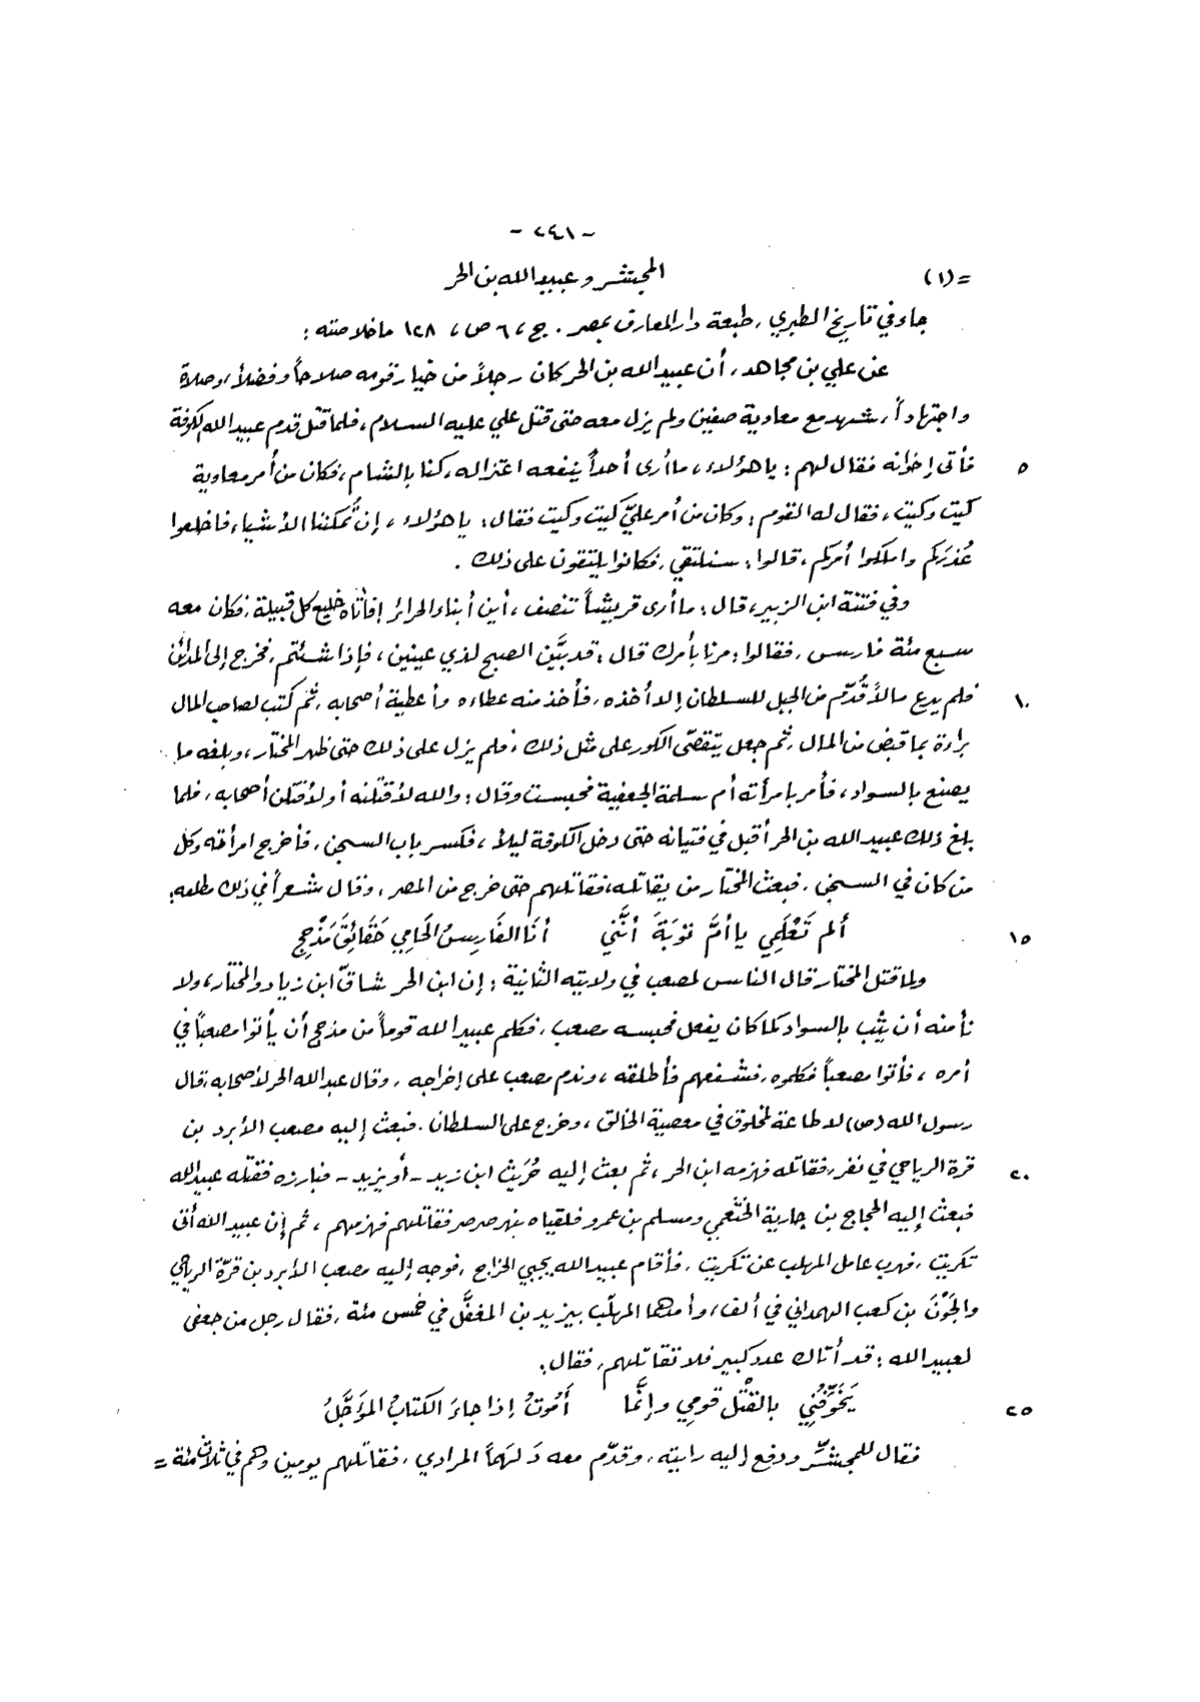 - ٢٤١ -
= (١) المجشر وعبيد الله بن الحر
جاء في تاريخ الطبري، طبعة دار المعارف بمصر. ج، ٦ ص، ١٢٨ ما خلاصته :
عن علي بن مجاهد، أن عبيد الله بن الحر كان رجلاً من خيار قومه صلاحاً وفضلاً، وصلاة
واجتهاداً، شهد مع معاوية صفين ولم يزل معه حتى قتل علي عليه السلام، فلما قتل قدم عبيد الله الكوفة
٥ فأتى إخوانه فقال لهم : يا هؤلاء، ما أرى أحداً ينفعه اعتزاله، كنا بالشام، فكان من أمر معاوية
كيت وكيت، فقال له القوم : وكان من أمر عليّ كيت وكيت فقال : يا هؤلاء، إن تُمكننا الأشياء فاخلعوا
عُذرَكم واملكوا أمركم، قالوا : سنلتقي، فكانوا يلتقون على ذلك .
وفي فتنة ابن الزبير، قال : ما أرى قريشاً تنصف، أين أبناء الحرائر ! فأتاه خليع كل قبيلة، فكان معه
سبع مئة فارس، فقالوا : مرنا بأمرك قال : قد بيَّن الصبح لذي عينين، فإذا شئتم، فخرج إلى المدائن
١٠ فلم يدع مالاً قُدّم من الجبل للسلطان إلا أخذه، فأخذ منه عطاءه وأعطية أصحابه، ثم كتب لصاحب المال
براءة بما قبض من المال، ثم جعل يتقصّى الكور على مثل ذلك، فلم يزل على ذلك حتى ظهر المختار، وبلغه ما
يصنع بالسواد، فأمر بامرأته أم سلمة الجعفية فحبست وقال : والله لأقتلنه أو لأقتلن أصحابه، فلما
بلغ ذلك عبيد الله بن الحر أقبل في فتيانه حتى دخل الكوفة ليلاً، فكسر باب السجن، فأخرج امرأته وكل
من كان في السجن، فبعث المختار من يقاتله، فقاتلهم حتى خرج من المصر، وقال شعراً في ذلك مطلعه :
١٥ ألم تَعْلَمِي يا أمَّ توبَةَ أنَّني أنَا الفَارِسُ الحَامِي حَقَائِقَ مَذْحِجِ
ولما قتل المختار قال الناس لمصعب في ولايته الثانية : إن ابن الحر شاقّ ابن زياد والمختار، ولا
نأمنه أن يثب بالسواد كما كان يفعل فحبسه مصعب، فكلم عبيد الله قوماً من مذحج أن يأتوا مصعباً في
أمره، فأتوا مصعباً فكلموه، فشفعهم فأطلقه، وندم مصعب على إخراجه، وقال عبدالله الحر لأصحابه، قال
رسول الله (ص) لا طاعة لمخلوق في معصية الخالق، وخرج على السلطان. فبعث إليه مصعب الأبرد بن
٢٠ قرة الرياحي في نفر، فقاتله فهزمه ابن الحر، ثم بعث إليه حُرَيث ابن زيد - أو يزيد - فبارزه فقتله عبيد الله
فبعث إليه الحجاج بن جارية الخثعمي ومسلم بن عمرو فلقياه بنهر صرصر فقاتلهم فهزمهم، ثم إن عبيد الله أتى
تكريت، فهرب عامل المهلب عن تكريت، فأقام عبيد الله يجبي الخراج، فوجه إليه مصعب الأبرد بن قرّة الرياحي
والجَوْنَ بن كعب الهمداني في ألف، وأمدهما المهلّب بيزيد بن المغفَّل في خمس مئة، فقال رجل من جعفي
لعبيد الله : قد أتاك عدد كبير فلا تقاتلهم، فقال :
٢٥ يَخَوِّفُنِي بالقَتْل قومِي وإنَّما أَمُوتُ إذا جاءَ الكتابُ المؤَجَّلُ
فقال للمجشِّر ودفع إليه رايته، وقدّم معه دَلهَماً المرادي، فقاتلهم يومين وهم في ثلاث مئة =